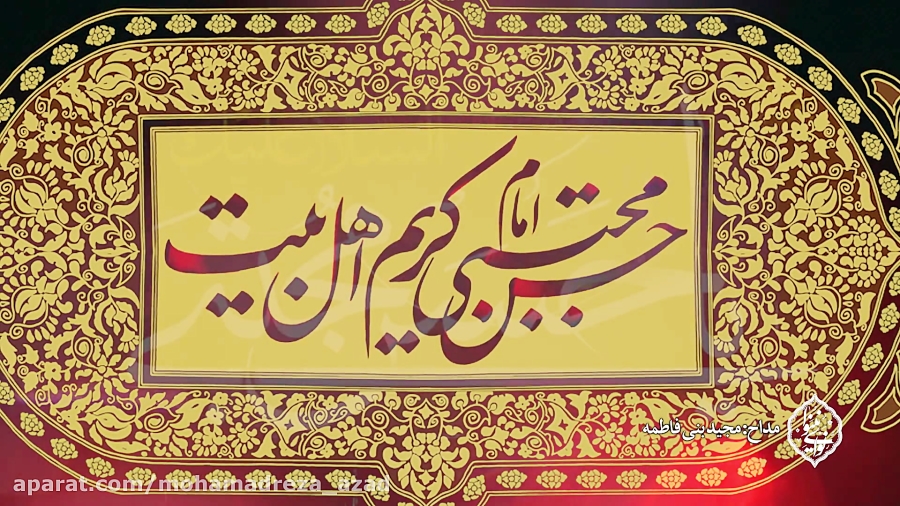 امام حسن مجتبی کریم اهل بیت
مداح: مجید بنی فاطمه
aparat.com/mohamadreza_azad